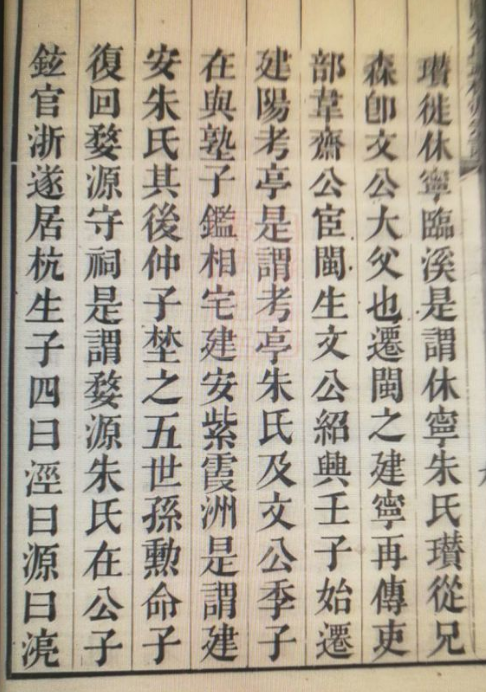 瓚徙休寧臨溪是謂休寧朱氏瓚從兄
森卽文公大父也遷閩之建寧再傳吏
部韋齋公宦閩生文公紹興壬子始遷
建陽考亭是謂考亭朱氏及文公季子
在與塾子鑑相宅建安紫霞洲是謂建
安朱氏其後仲子埜之五世孫勳命子
復回婺源守祠是謂婺源朱氏在公子
鉉官浙遂居杭生子四曰溼曰源曰湸